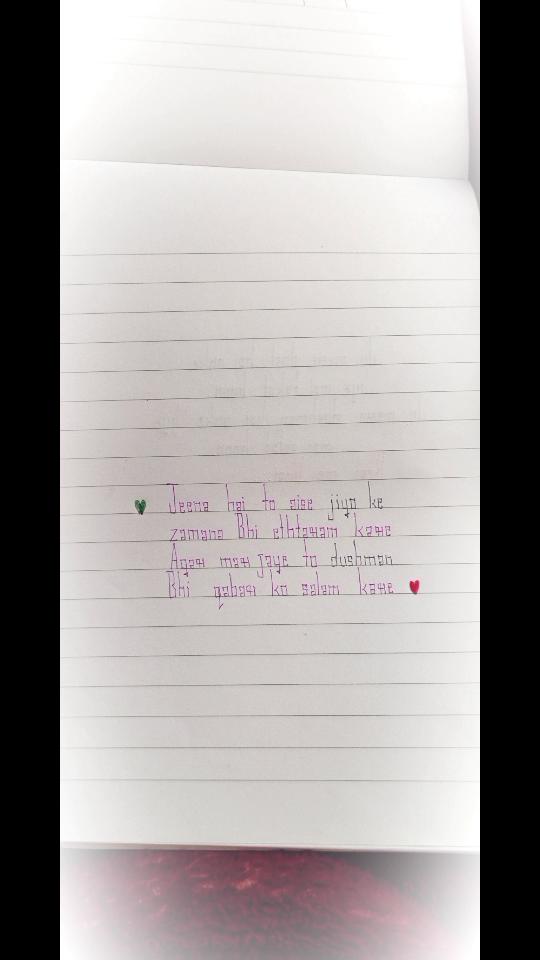 Jeena hai to aise jiyo ke
zamana Bhi ehtaram kare
Agar mar jaye to dushman
Bhi qabar ko salam kare